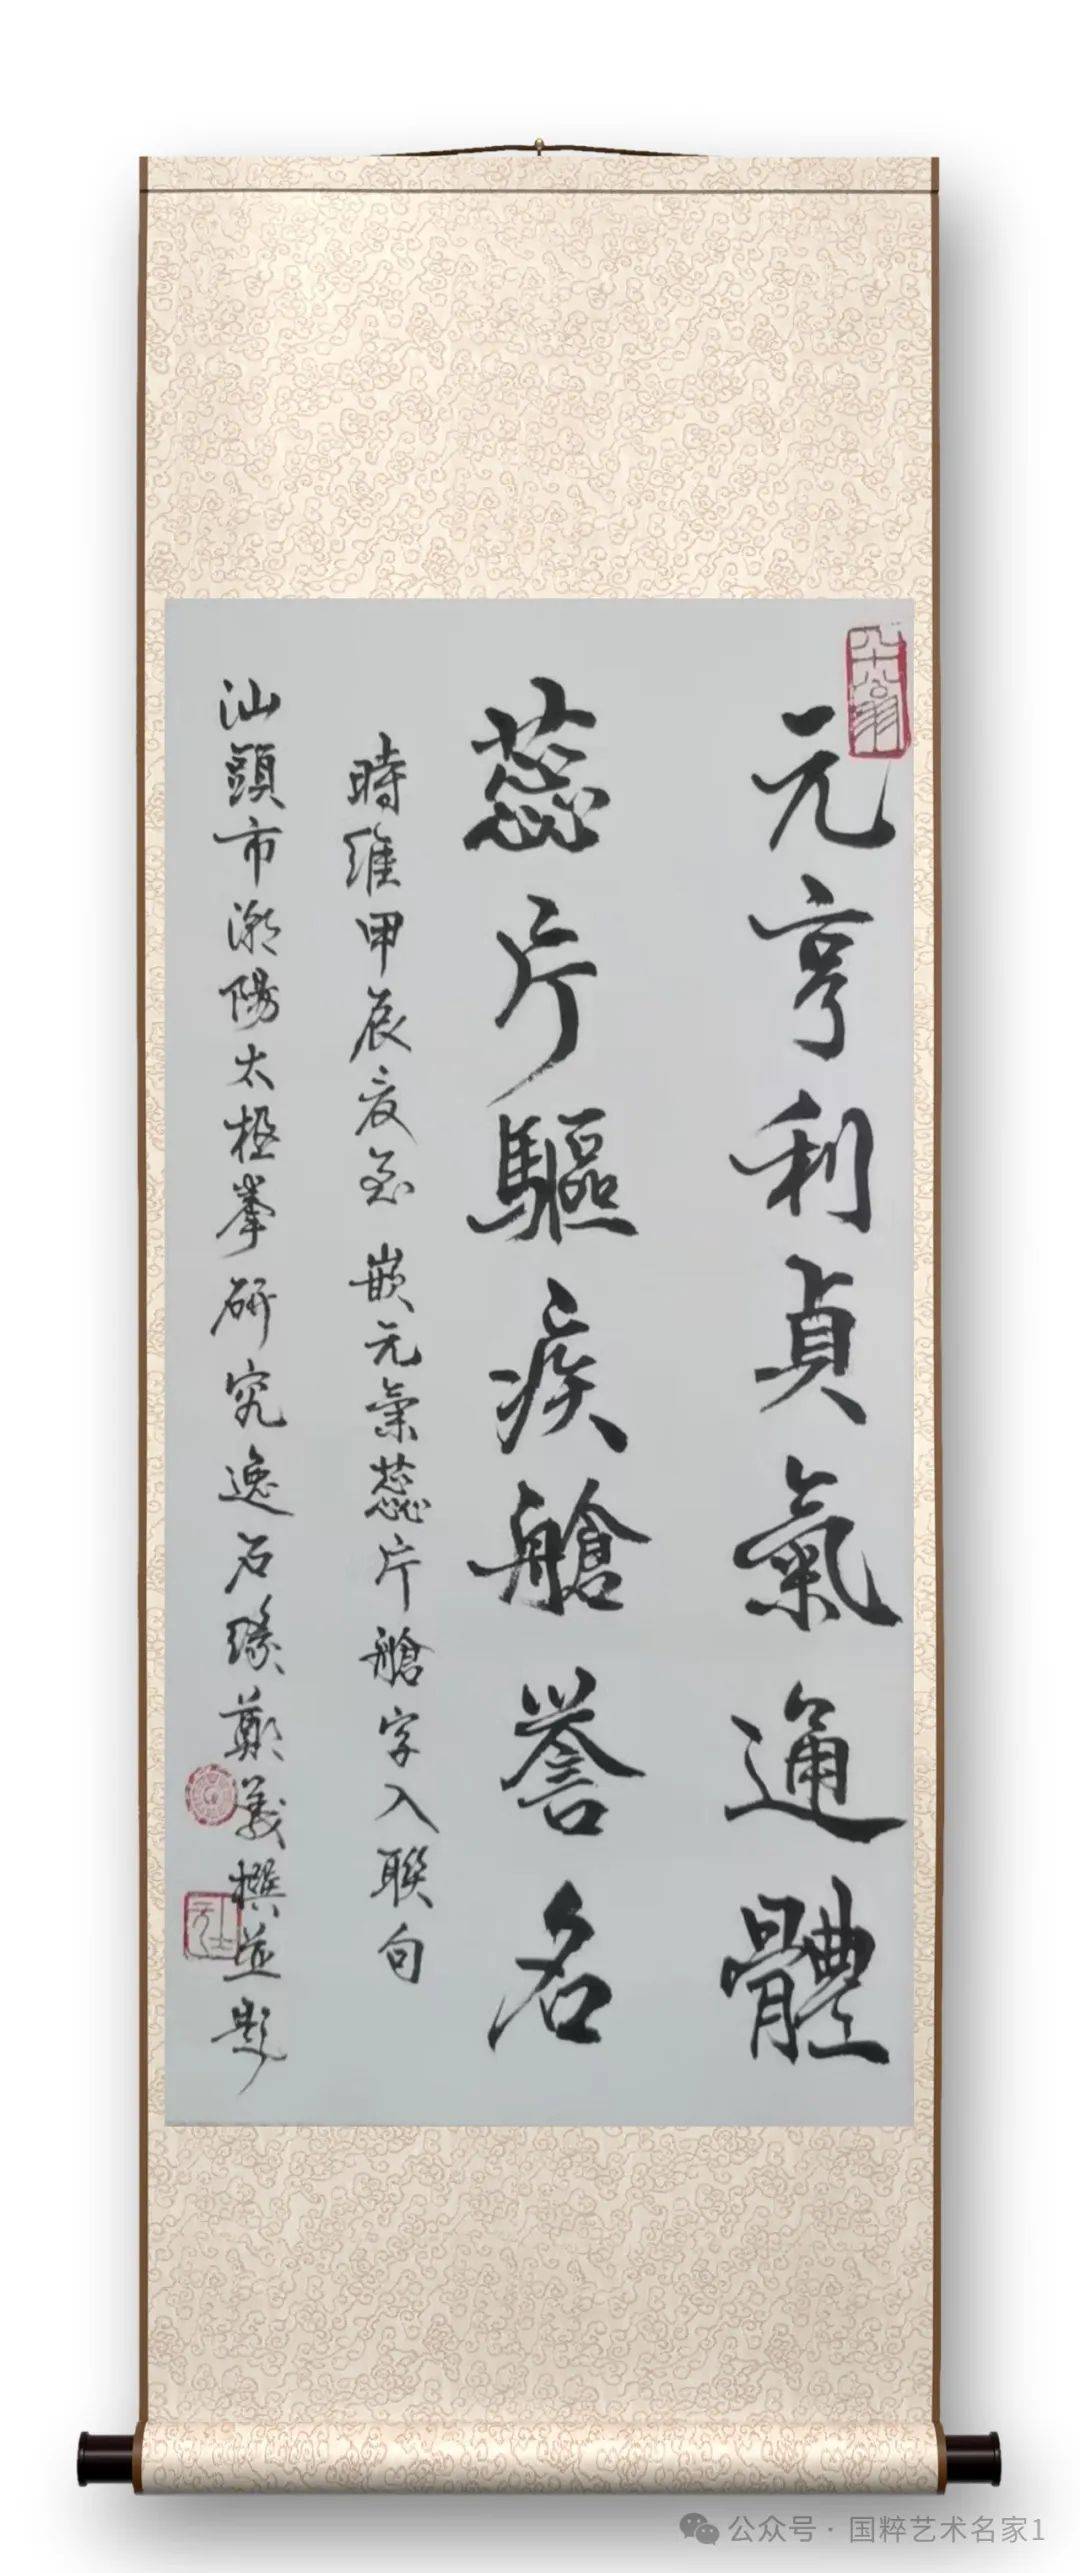 元亨利貞氣通體
蕊片驅疾艙譽名
時維甲辰夏至 嵌元氣蕊片艙字入聯句
汕頭市潮陽太極拳研究逸石緣鄭義撰並題
公众号 · 国粹艺术名家1